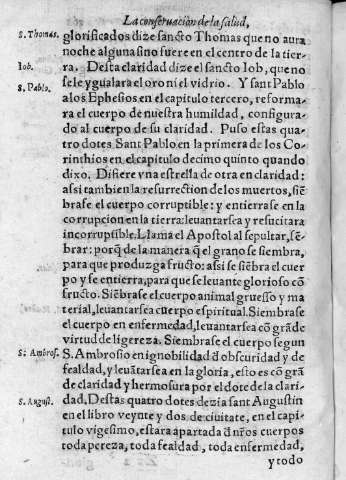 La conseruacion de la salud,
S. Thomas.
glorificados dize sancto Thomas que no aura
noche alguna sino fuere en el centro de la tier-
Iob.
ra. Desta claridad dize el sancto Iob, que no
se le ygualara el oro ni el vidrio. Y sant Pablo
S. Pablo.
a los Ephesios en el capitulo tercero, reforma-
ra el cuerpo de nuestra humildad, configura-
do al cuerpo de su claridad. Puso estas qua-
tro dotes Sant Pablo en la primera de los Co-
rinthios en el capitulo decimo quinto quando
dixo. Difiere vna estrella de otra en claridad:
assi tambien la resurrection de los muertos, siẽ-
brase el cuerpo corruptible: y entierrase en la
corrupcion en la tierra: leuantarsea y resucitara
incorruptible. Llama el Apostol al sepultar, sẽ-
brar: porq̃ de la manera q̃ el grano se siembra,
para que produzga fructo: assi se siẽbra el cuer
po y se entierra, para que se leuante glorioso cõ
fructo. Siẽbrase el cuerpo animal gruesso y ma
terial, leuantarsea cuerpo espiritual. Siembrase
el cuerpo en enfermedad, leuantarsea cõ grãde
virtud de ligereza. Siembrase el cuerpo segun
S. Ambros.
S. Ambrosio en ignobilidad d̃ obscuridad y de
fealdad, y leuãtarsea en la gloria, esto es cõ grã
de claridad y hermosura por el dote de la clari-
S. August.
dad. Destas quatro dotes dezia sant Augustin
en el libro veynte y dos de ciuitate, en el capi-
tulo vigesimo, estara apartada d̃ nr̃os cuerpos
toda pereza, toda fealdad, toda enfermedad,
y todo